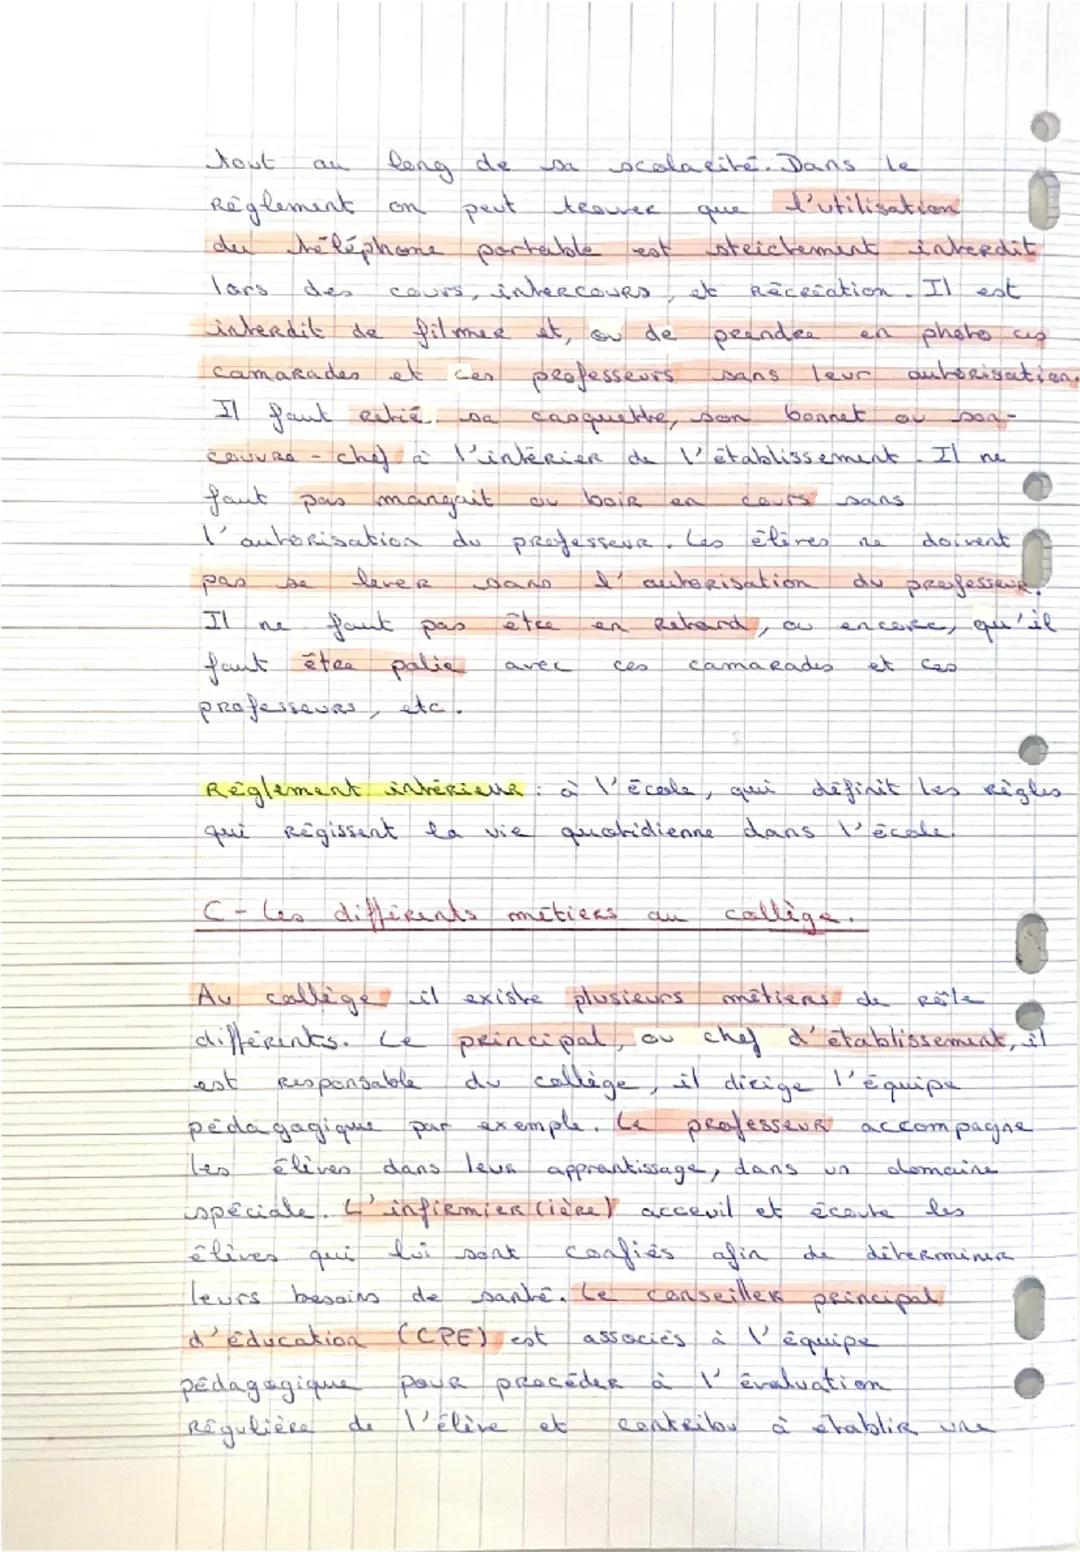 tout au long de sa scolarité. Dans le
Réglement on peut trouver que l'utilisation
du téléphone portable est strictement interdit
lors des cours, intercours, et Récréation. Il est
interdit de filmer et, ou de prendre en photo ces
camarades et ces professeurs sans leur autorisation.
Il faut retié sa casquette, son bonnet ou son-
couvre-chef à l'intérier de l'établissement. Il ne
faut pas mangait ou boir en cours sans
l'autorisation du professeur. Les élèves ne doivent
pas se lever sans l'autorisation du professeur.
Il ne faut pas être en Retard, ou encore, qu'il
faut être polie avec ces camarades et ces
professeurs, etc.
Réglement intérieur : à l'école, qui définit les règles
qui Régissent la vie quotidienne dans l'école.
C - Les différents métiers au collège.
Au collège il existe plusieurs métiers de rôle
différents. Le principal, ou chef d'établissement, il
est Responsable du collège, il dirige l'équipe
pédagogique par exemple. Le professeur accompagne
les élèves dans leur apprentissage, dans un domaine
spéciale. L'infirmier(ière) acceuil et écoute les
élèves qui lui sont confiés afin de déterminer
leurs besoins de santé. Le conseiller principal
d'éducation (CPE) est associés à l'équipe
pédagogique pour procéder à l'évaluation
Régulière de l'élève et contribu à établir une